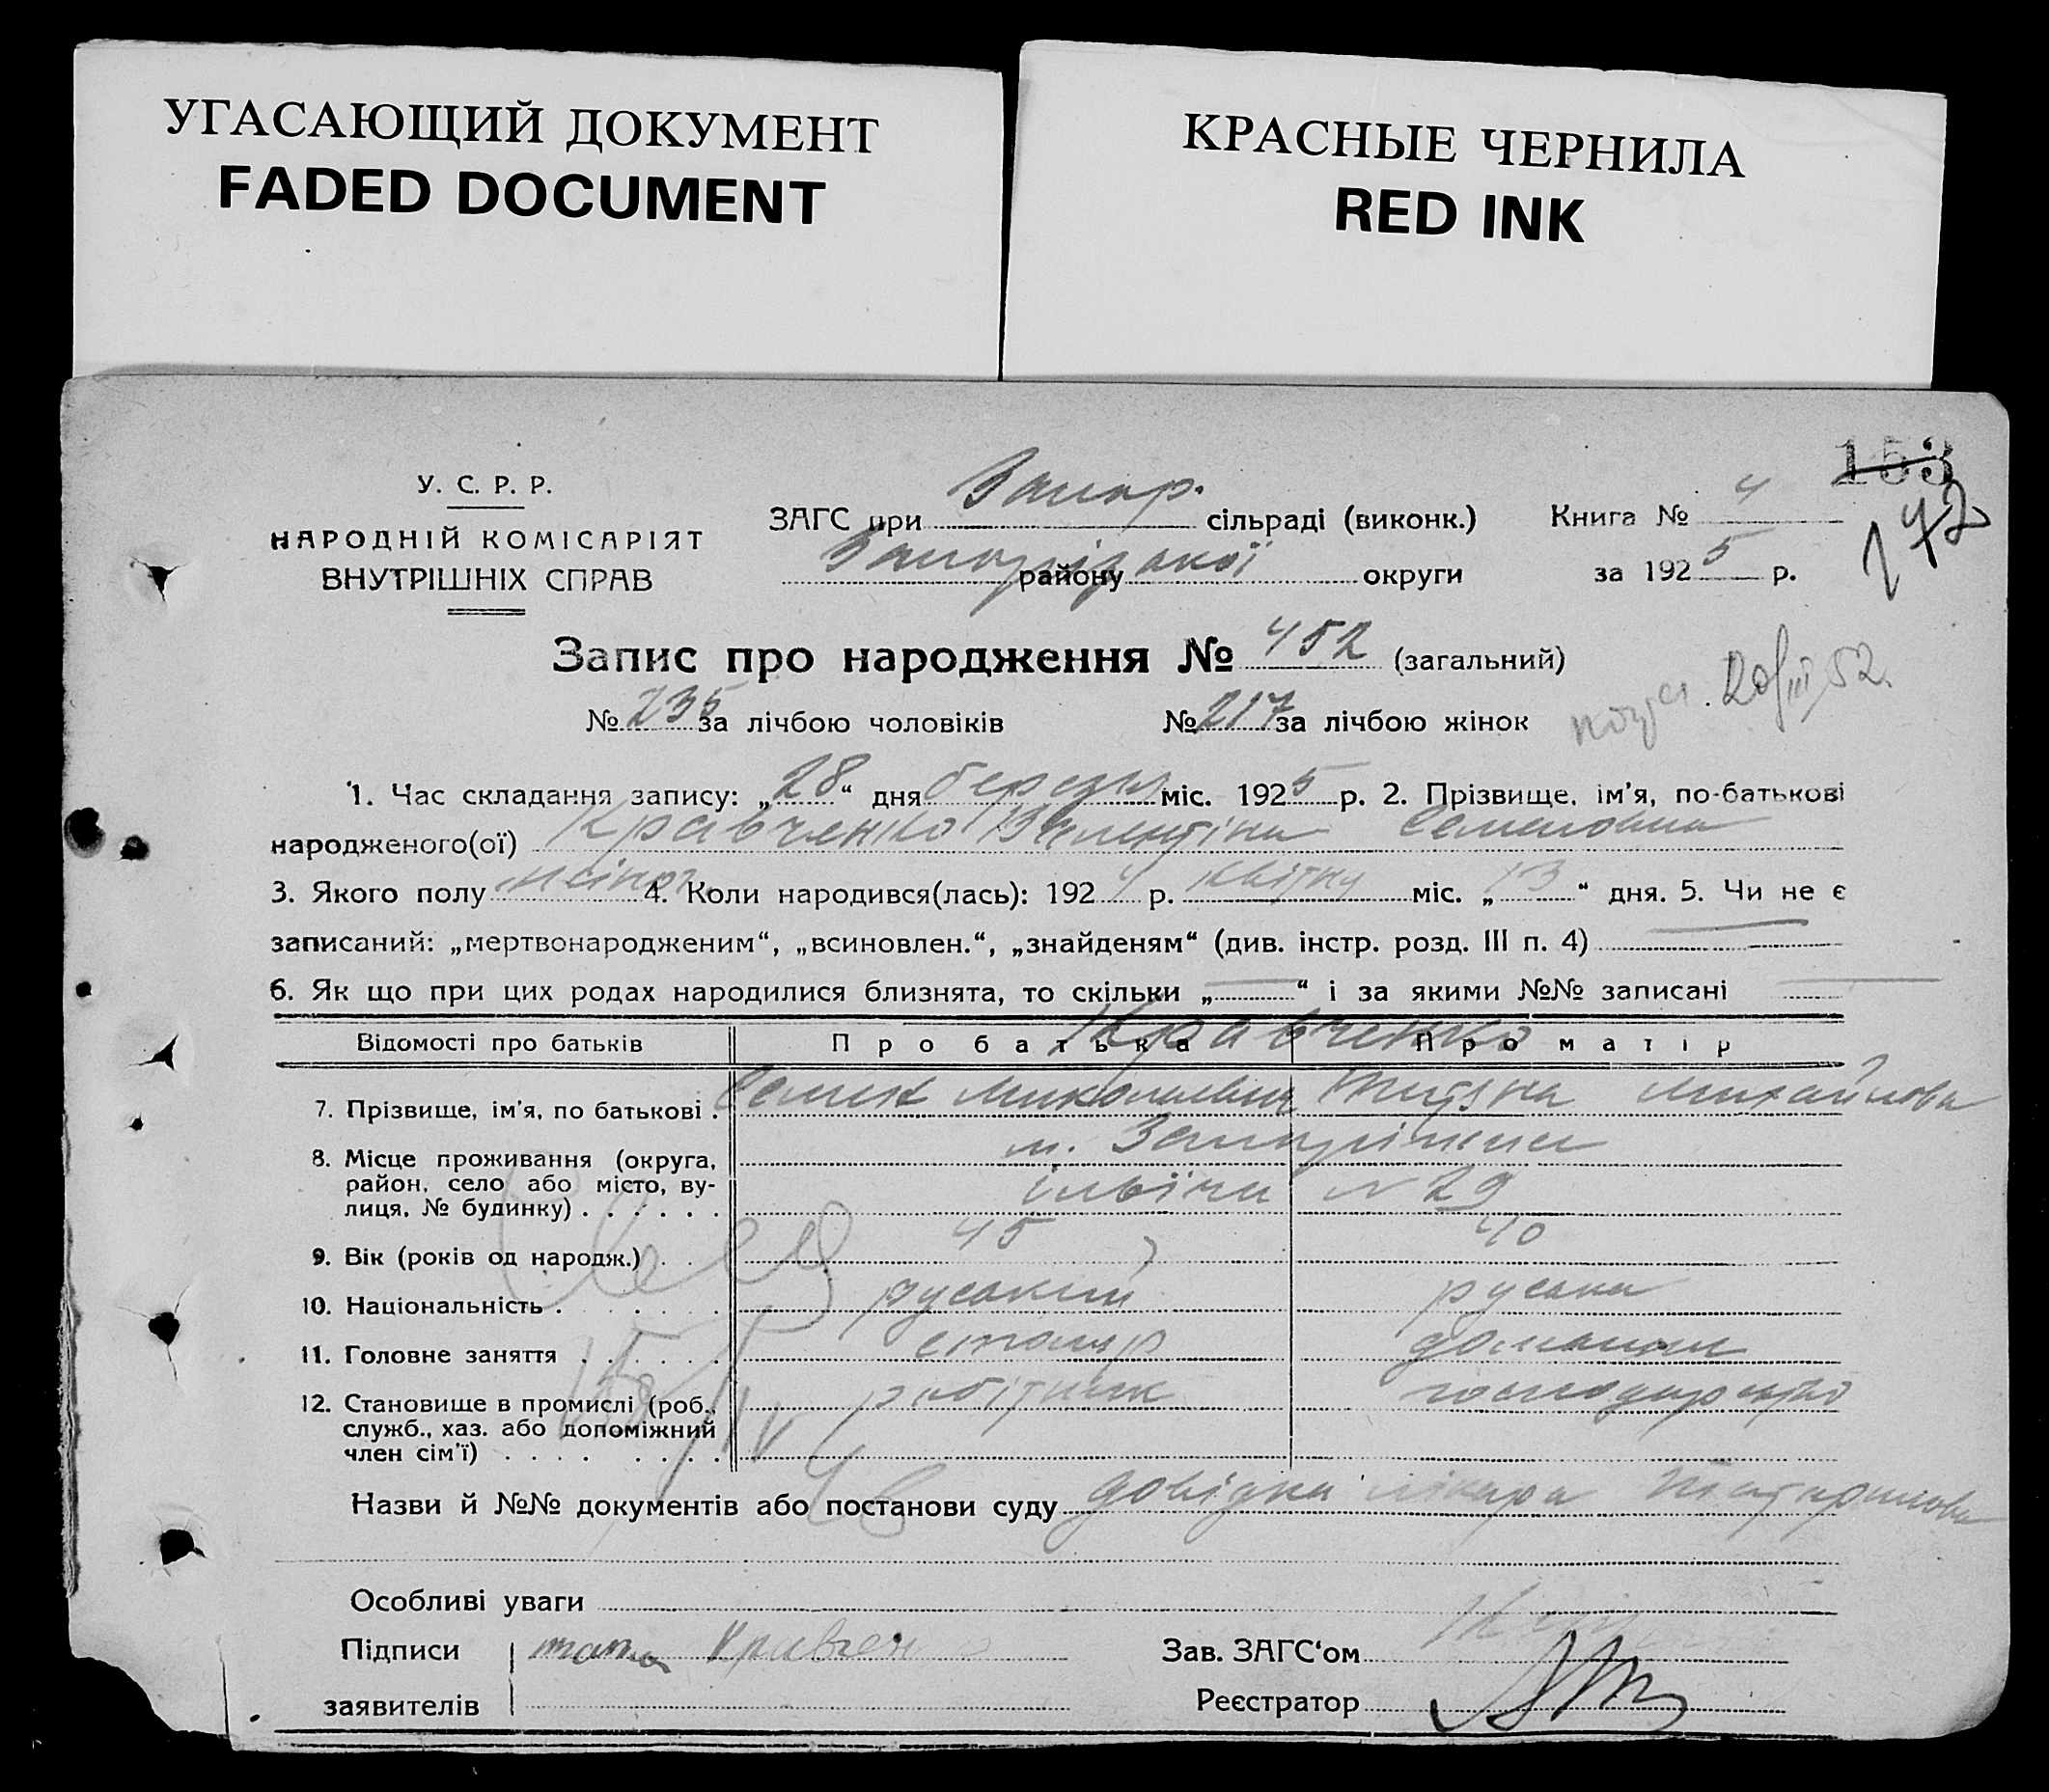 УГАСАЮЩИЙ ДОКУМЕНТ
FADED DOCUMENT
КРАСНЫЕ ЧЕРНИЛА
RED INK
153
172
У. С. Р. Р.
НАРОДНІЙ КОМІСАРІЯТ
ВНУТРІШНІХ СПРАВ
ЗАГС при Запор. сільраді (виконк.)
Запорізької району округи
Книга № 4
за 1925 р.
Запис про народження № 452 (загальний)
№ 235 за лічбою чоловіків № 217 за лічбою жінок
20/III 52.
1. Час складання запису: „28“ дня березня міс. 1925 р. 2. Прізвище, ім'я, по-батькові
народженого(ої) Кравченко Валентіна Семеновна
3. Якого полу жіноч. 4. Коли народився(лась): 1924 р. квітня міс. „13“ дня. 5. Чи не є
записаний: „мертвонародженим“, „всиновлен.“, „знайденям“ (див. інстр. розд. III п. 4)
6. Як що при цих родах народилися близнята, то скільки „ “ і за якими №№ записані
Кравченко
Відомості про батьків Про батька Про матір
7. Прізвище, ім'я, по батькові . Семен Миколаевич Титяна Михайлова
8. Місце проживання (округа, район, село або місто, вулиця, № будинку) . . . . . . м. Запоріжжя
№ 29
9. Вік (років од народж.) . . . 45 40
10. Національність . . . . . . руський руська
11. Головне заняття . . . . . . столяр домашнє
12. Становище в промислі (роб., служб., хаз. або допоміжний член сім'ї) . . . . . . . . робітник господарство
Назви й №№ документів або постанови суду довідка лікаря
Особливі уваги
Підписи Кравчен
заявителів
Зав. ЗАГС'ом
Реєстратор